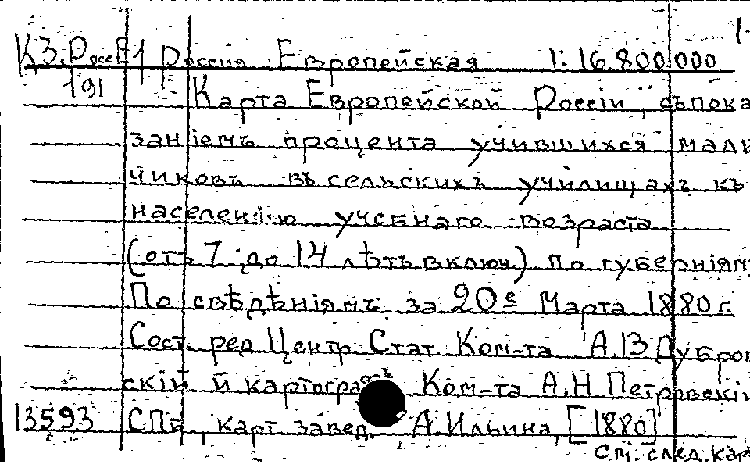 1-
К3.РоссЕ1 Россия Европейская 1:16.800.000
191 Карта Европейской Россіи, съ пока
заніемъ процента учившихся маль
чиковъ въ сельскихъ училищахъ къ
населенію учебнаго возраста
(отъ 7 до 14 лѣтъ включ.) по губерніямъ
По свѣдѣніямъ за 20е Марта 1880 г.
Сост. ред Центр Стат. Ком-та А.В Дубров
скій и картографъ Ком-та А.Н. Петровскій
13593 СПб, карт. завед. А.Ильина, [1880]
См. след. кар